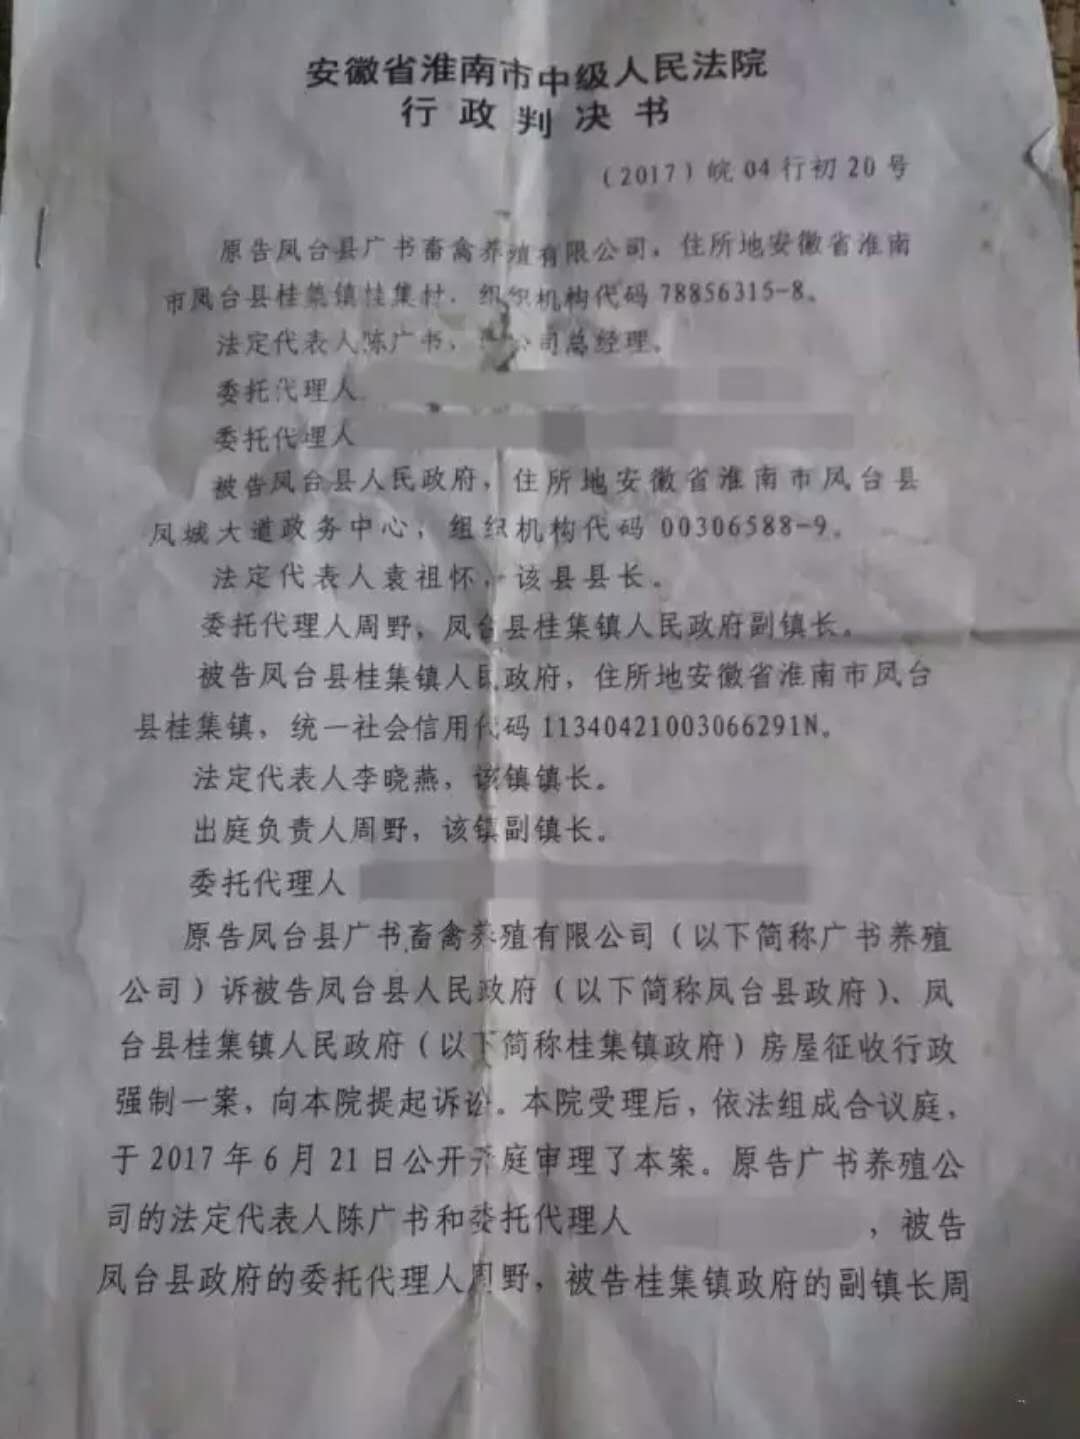 安徽省淮南市中级人民法院
行政判决书
（2017）皖04行初20号
原告凤台县广书畜禽养殖有限公司，住所地安徽省淮南
市凤台县桂集镇桂集村，组织机构代码78856315-8。
法定代表人陈广书，公司总经理。
委托代理人
委托代理人
被告凤台县人民政府，住所地安徽省淮南市凤台县
凤城大道政务中心，组织机构代码00306588-9。
法定代表人袁祖怀，该县县长。
委托代理人周野，凤台县桂集镇人民政府副镇长。
被告凤台县桂集镇人民政府，住所地安徽省淮南市凤台
县桂集镇，统一社会信用代码11340421003066291N。
法定代表人李晓燕，该镇镇长。
出庭负责人周野，该镇副镇长。
委托代理人
原告凤台县广书畜禽养殖有限公司（以下简称广书养殖
公司）诉被告凤台县人民政府（以下简称凤台县政府）、凤
台县桂集镇人民政府（以下简称桂集镇政府）房屋征收行政
强制一案，向本院提起诉讼。本院受理后，依法组成合议庭，
于2017年6月21日公开开庭审理了本案。原告广书养殖公
司的法定代表人陈广书和委托代理人，被告
凤台县政府的委托代理人周野，被告桂集镇政府的副镇长周